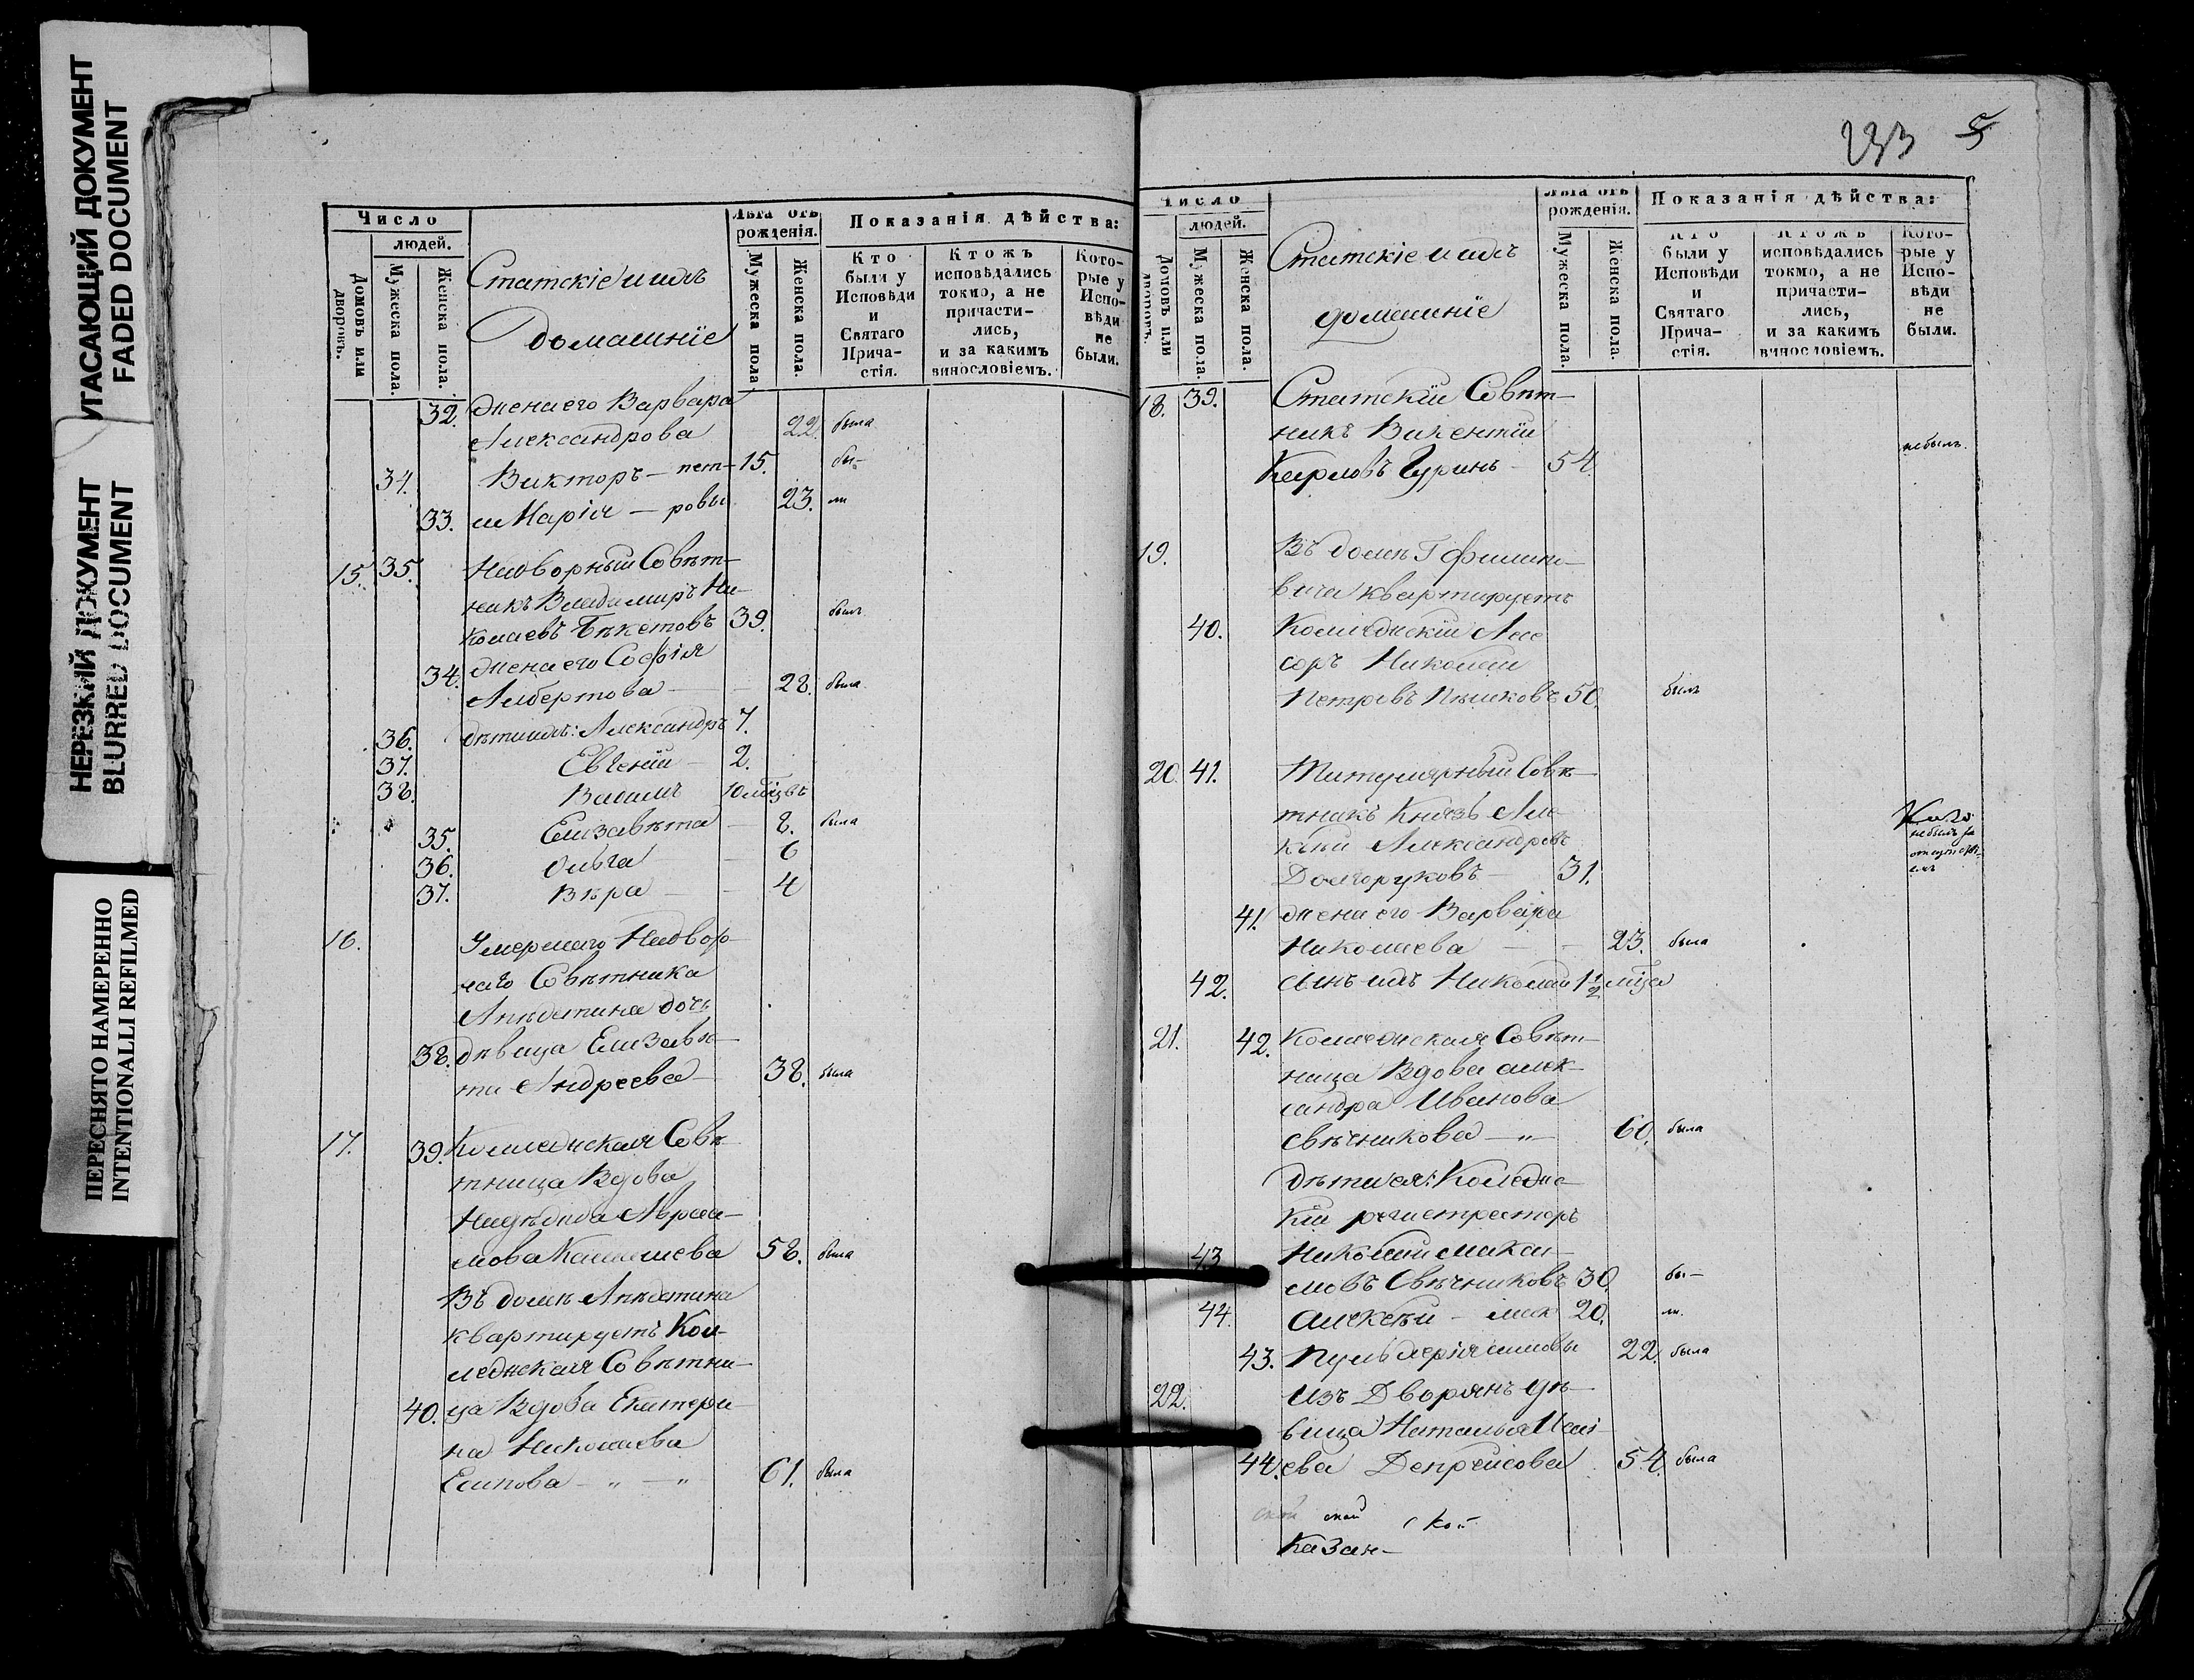 УГАСАЮЩИЙ ДОКУМЕНТ
FADED DOCUMENT
НЕРЕЗКИЙ ДОКУМЕНТ
BLURRED DOCUMENT
ПЕРЕСНЯТО НАМЕРЕННО
INTENTIONALLI REFILMED
Число
людей.
Домовъ или дворовъ.
Мужеска пола.
Женска пола.
Статскіе и ихъ
домашніе
Лѣта отъ
рожденія.
Мужеска пола
Женска пола.
Показанія дѣйства:
Кто
были у
Исповѣди
и
Святаго
Прича-
стія.
Ктожъ
исповѣдались
токмо, а не
причасти-
лись,
и за какимъ
винословіемъ.
Кото-
рые у
Испо-
вѣди
не
были.
32. жена его Варвара
Александрова 22. была
34. Викторъ – пет- 15. бы-
33. и Марія – ровы 23. ли
15. 35. Надворный Совѣт-
никъ Владимиръ Ни-
колаевъ Бекетовъ 39. былъ
34. жена его Софія
Албертова – 28. была
36. дѣти ихъ: Александръ 7.
37. Евгеній – 2.
38. Вадимъ 10 мѣцвъ
35. Елизавѣта – 8. была
36. Ольга – 6
37. Вѣра – 4
16. Умершаго Надвор-
наго Совѣтника
дочь
38. дѣвица Елизавѣ-
та Андреева – 38. была
17. 39. Коллежская Совѣ-
тница Вдова
Надѣжда Абра-
мова 58. была
Въ домѣ
квартируетъ Кол-
лежская Совѣтни-
40. ца Вдова Екатери-
на Николаева
Еипова – „ – „ 61. была
233 5
Число
людей.
Домовъ или дворовъ.
Мужеска пола.
Женска пола.
Статскіе и ихъ
домашніе
Лѣта отъ
рожденія.
Мужеска пола.
Женска пола.
Показанія дѣйства:
Кто
были у
Исповѣди
и
Святаго
Прича-
стія.
Ктожъ
исповѣдались
токмо, а не
причасти-
лись,
и за какимъ
винословіемъ.
Кото-
рые у
Испо-
вѣди
не
были.
18. 39. Статскій Совѣт-
никъ Викентій
Карловъ Гуринъ – 54. небылъ.
19. Въ домѣ Г
квартируетъ
40. Коллежскій Асе
соръ Николай
Петровъ Пѣшковъ 50. былъ
20. 41. Титулярный Совѣ-
тникъ Князь Але-
ксѣй Александровъ
Долгоруковъ – 31. небылъ за
отсутстві-
емъ
41. жена его Варвара
Николаева – – 23. была
42. сынъ ихъ Николай 1 1/2 мѣца
21. 42. Коллежская Совѣт-
ница Вдова Алек-
сандра Иванова
Свѣчникова – „ – 60. была
дѣти ея: Коллежс-
кій регистраторъ
43. Николай Макси-
мовъ Свѣчниковъ 30. бы-
44. Алексѣй – 20. ли.
43. Пульхерія 22. была
22. Изъ Дворянъ дѣ-
вица Наталья
44. ева Депрейсова 54. была
ской ской кой
Казан-